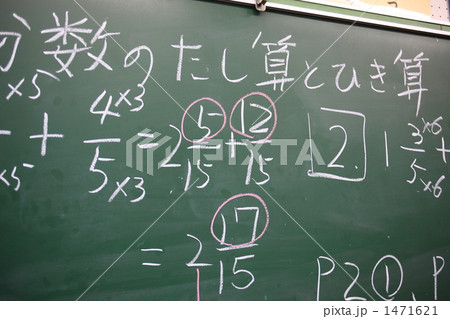 分数のたし算とひき算
×5 4×3
+ 4/5 = 2 5/15 + 12/15 [2.] 1 3×6/5×6 +
×5 ×3
= 2 17/15
P2① P
pixta
pixta.jp - 1471621